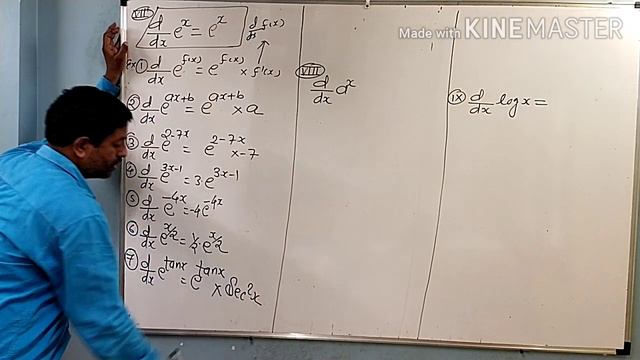 Made with KINEMASTER
VII d/dx e^x = e^x d/dx f(x)
Ex ① d/dx e^f(x) = e^f(x) × f'(x)
② d/dx e^ax+b = e^ax+b × a
③ d/dx e^2-7x = e^2-7x × -7
④ d/dx e^3x-1 = 3 e^3x-1
⑤ d/dx e^-4x = -4 e^-4x
⑥ d/dx e^x/2 = 1/2 · e^x/2
⑦ d/dx e^tanx = e^tanx × Sec²x
VIII
d/dx a^x
IX d/dx log x =